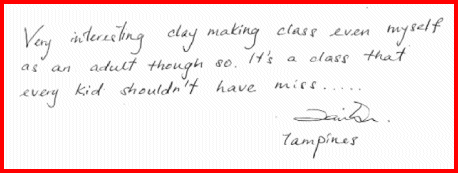 Very interesting clay making class even myself
as an adult though so. It's a class that
every kid shouldn't have miss.....
Tampines